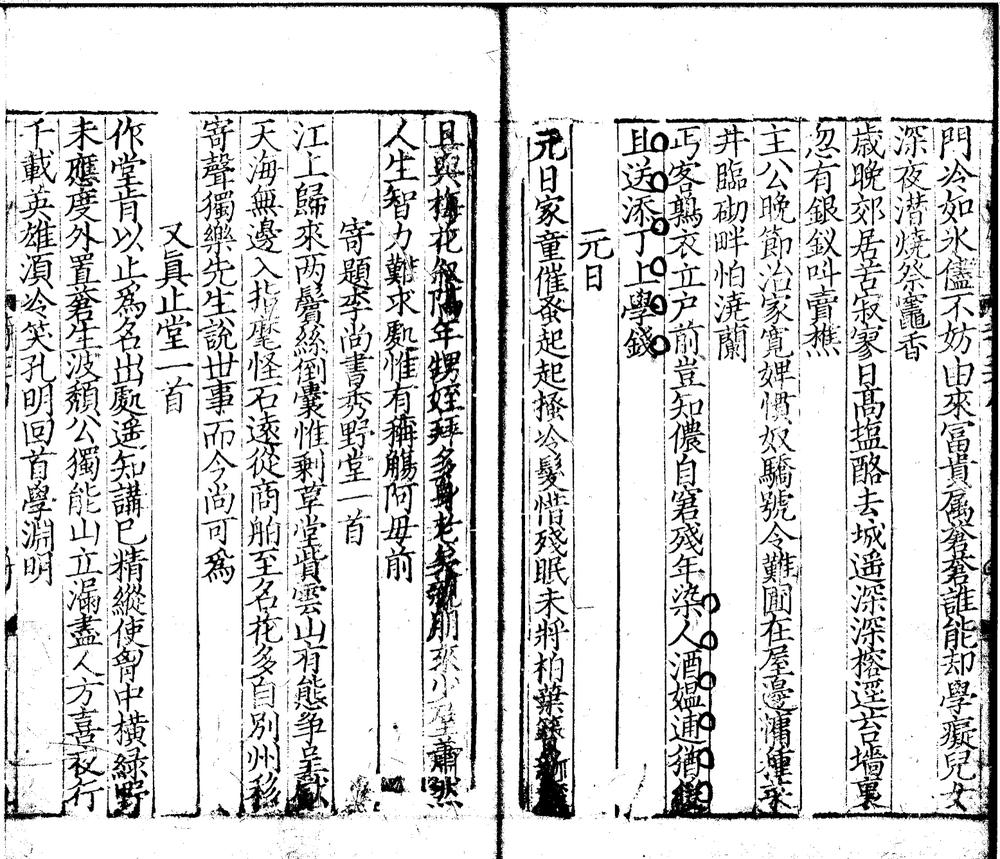 門冷如氷儘不妨由來冨貴属蒼蒼誰能却學癡兒女
深夜潜燒祭竈香
歳晚郊居苦寂寥日髙塩酪去城遥深深榕逕苔墻裏
忽有銀釵叫賣樵
主公晚節治家寛婢慣奴驕號令難圊在屋邊慵
井臨砌畔怕澆蘭
丐客鶉衣立户前豈知儂自窘殘年染人酒媪逋猶
且送添丁上學錢
元日
元日家童催蚤起起搔冷髮惜殘眠未將柏葉
且與梅花叙隔年甥姪拜多身老矣親朋來少屋蕭然
人生智力難求處惟有稱觴阿母前
寄題李尚書秀野堂一首
江上歸來两鬢絲倒囊惟剩草堂貲雲山有態爭呈獻
天海無邊入指麾怪石遠從商舶至名花多自别州移
寄聲獨樂先生說丗事而今尚可爲
又眞止堂一首
作堂肯以止爲名出處遥知講已精縱使胷中横綠野
未應度外置蒼生波頽公獨能山立漏盡人方喜夜行
千載英雄湏冷笑孔明回首學淵明